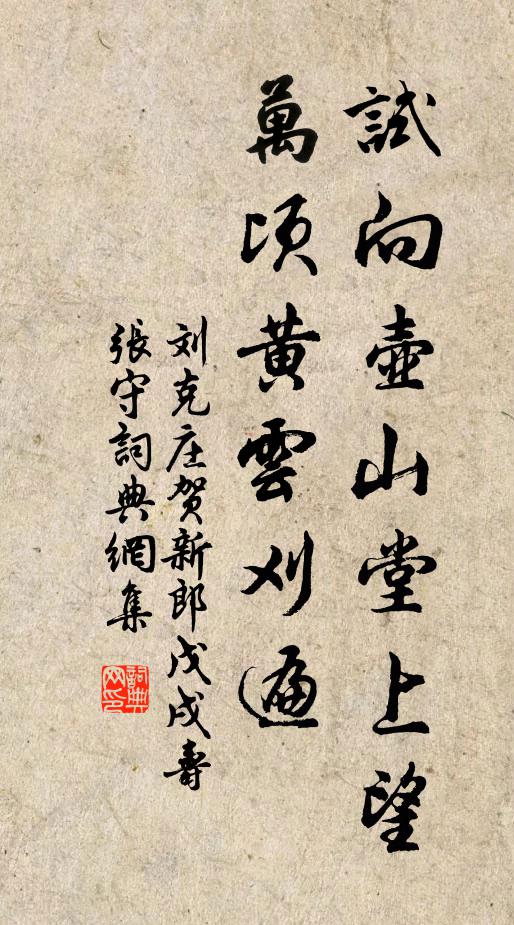 試向壺山堂上望
萬頃黃雲刈遍
刘克庄贺新郎戊戌壽
張守詞典網集
詞典网印